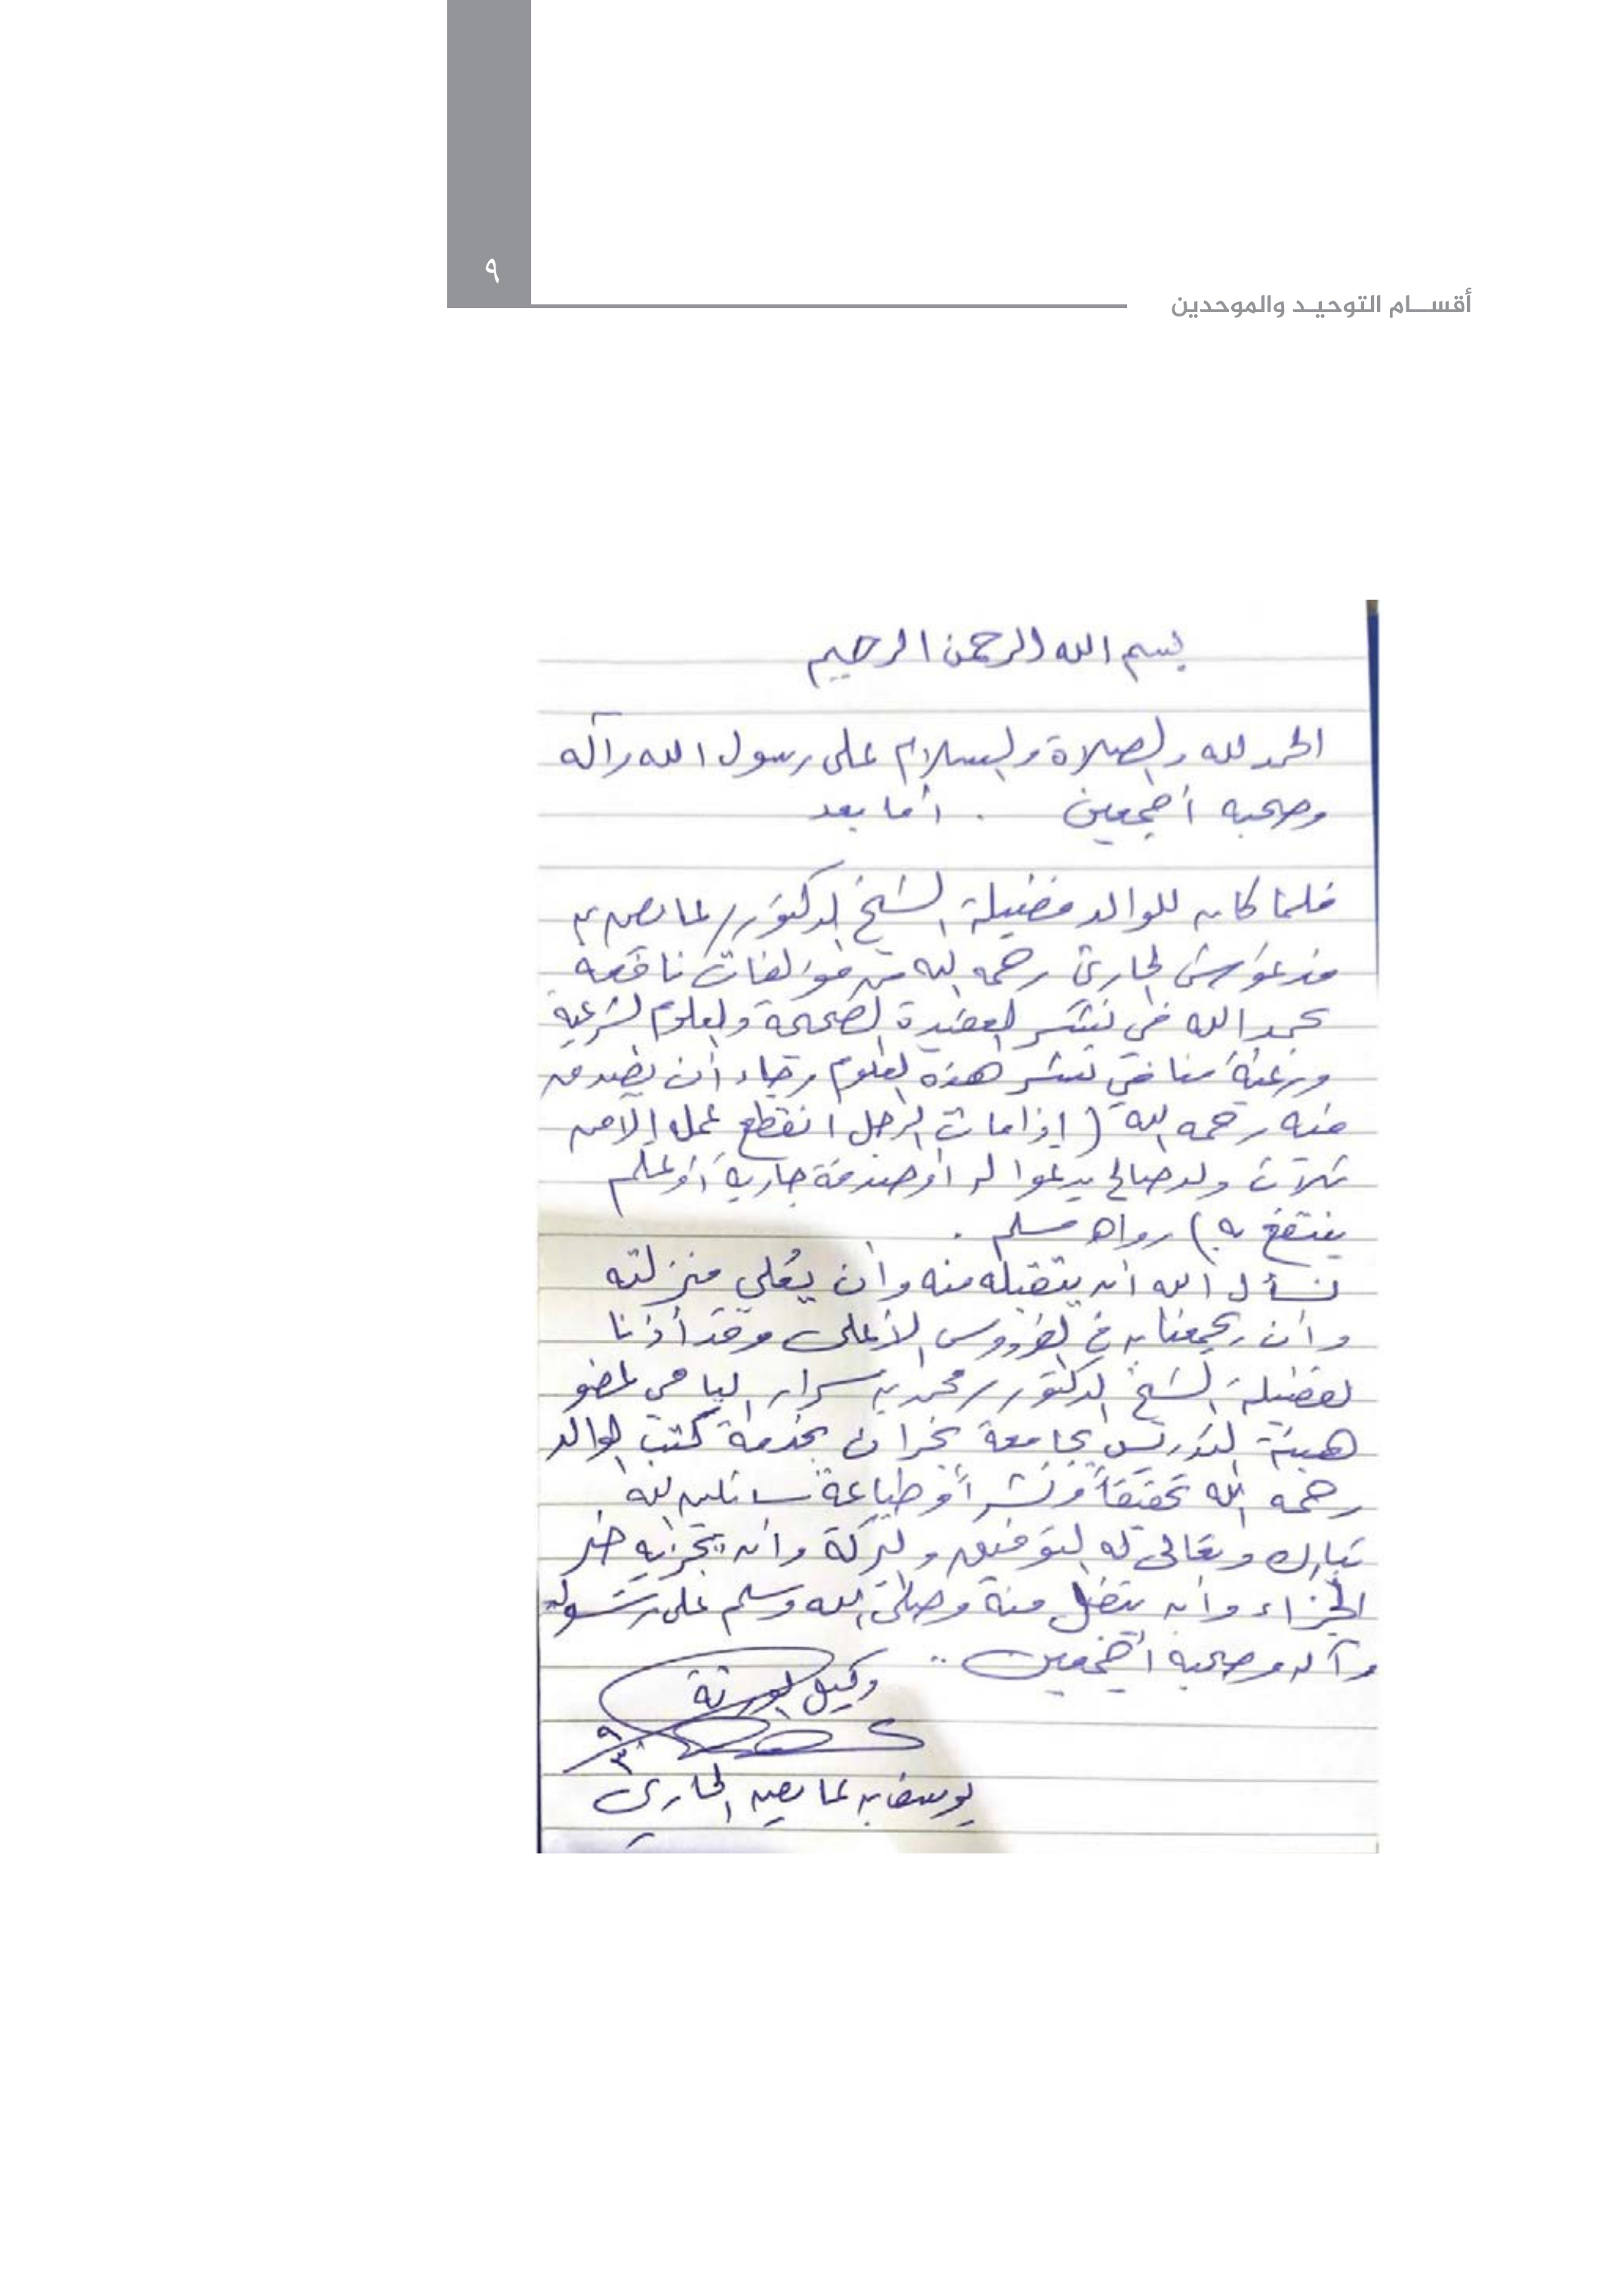 ٩
أقسام التوحيد والموحدين
بسم الله الرحمن الرحيم
الحمد لله والصلاة والسلام على رسول الله وآله
وصحبه أجمعين . أما بعد
فلما كان للوالد فضيلة الشيخ الدكتور/ عايض بن
فدغوش الحارثي رحمه الله من مؤلفات نافعة
بحمد الله في نشر العقيدة الصحيحة والعلوم الشرعية
ورغبة منا في نشر هذه العلوم رجاء أن يصدق
فيه رحمه الله (إذا مات الرجل انقطع عمله إلا من
ثلاث ولد صالح يدعوا له أو صدقة جارية أو علم
ينتفع به) رواه مسلم .
نسأل الله أن يتقبله منه وأن يُعلي منزلته
وأن يجمعنا به في الفردوس الأعلى وقد أذنا
لفضيلة الشيخ الدكتور/ محمد بن سرار اليامي عضو
هيئة التدريس بجامعة نجران بخدمة كتب الوالد
رحمه الله تحقيقاً ونشراً وطباعة سائلين الله
تبارك وتعالى له التوفيق والبركة وأن يجزيه خير
الجزاء وأن يتقبل منه وصلى الله وسلم على رسوله
وآله وصحبه أجمعين ..
وكيل الورثة
يوسف بن عايض الحارثي